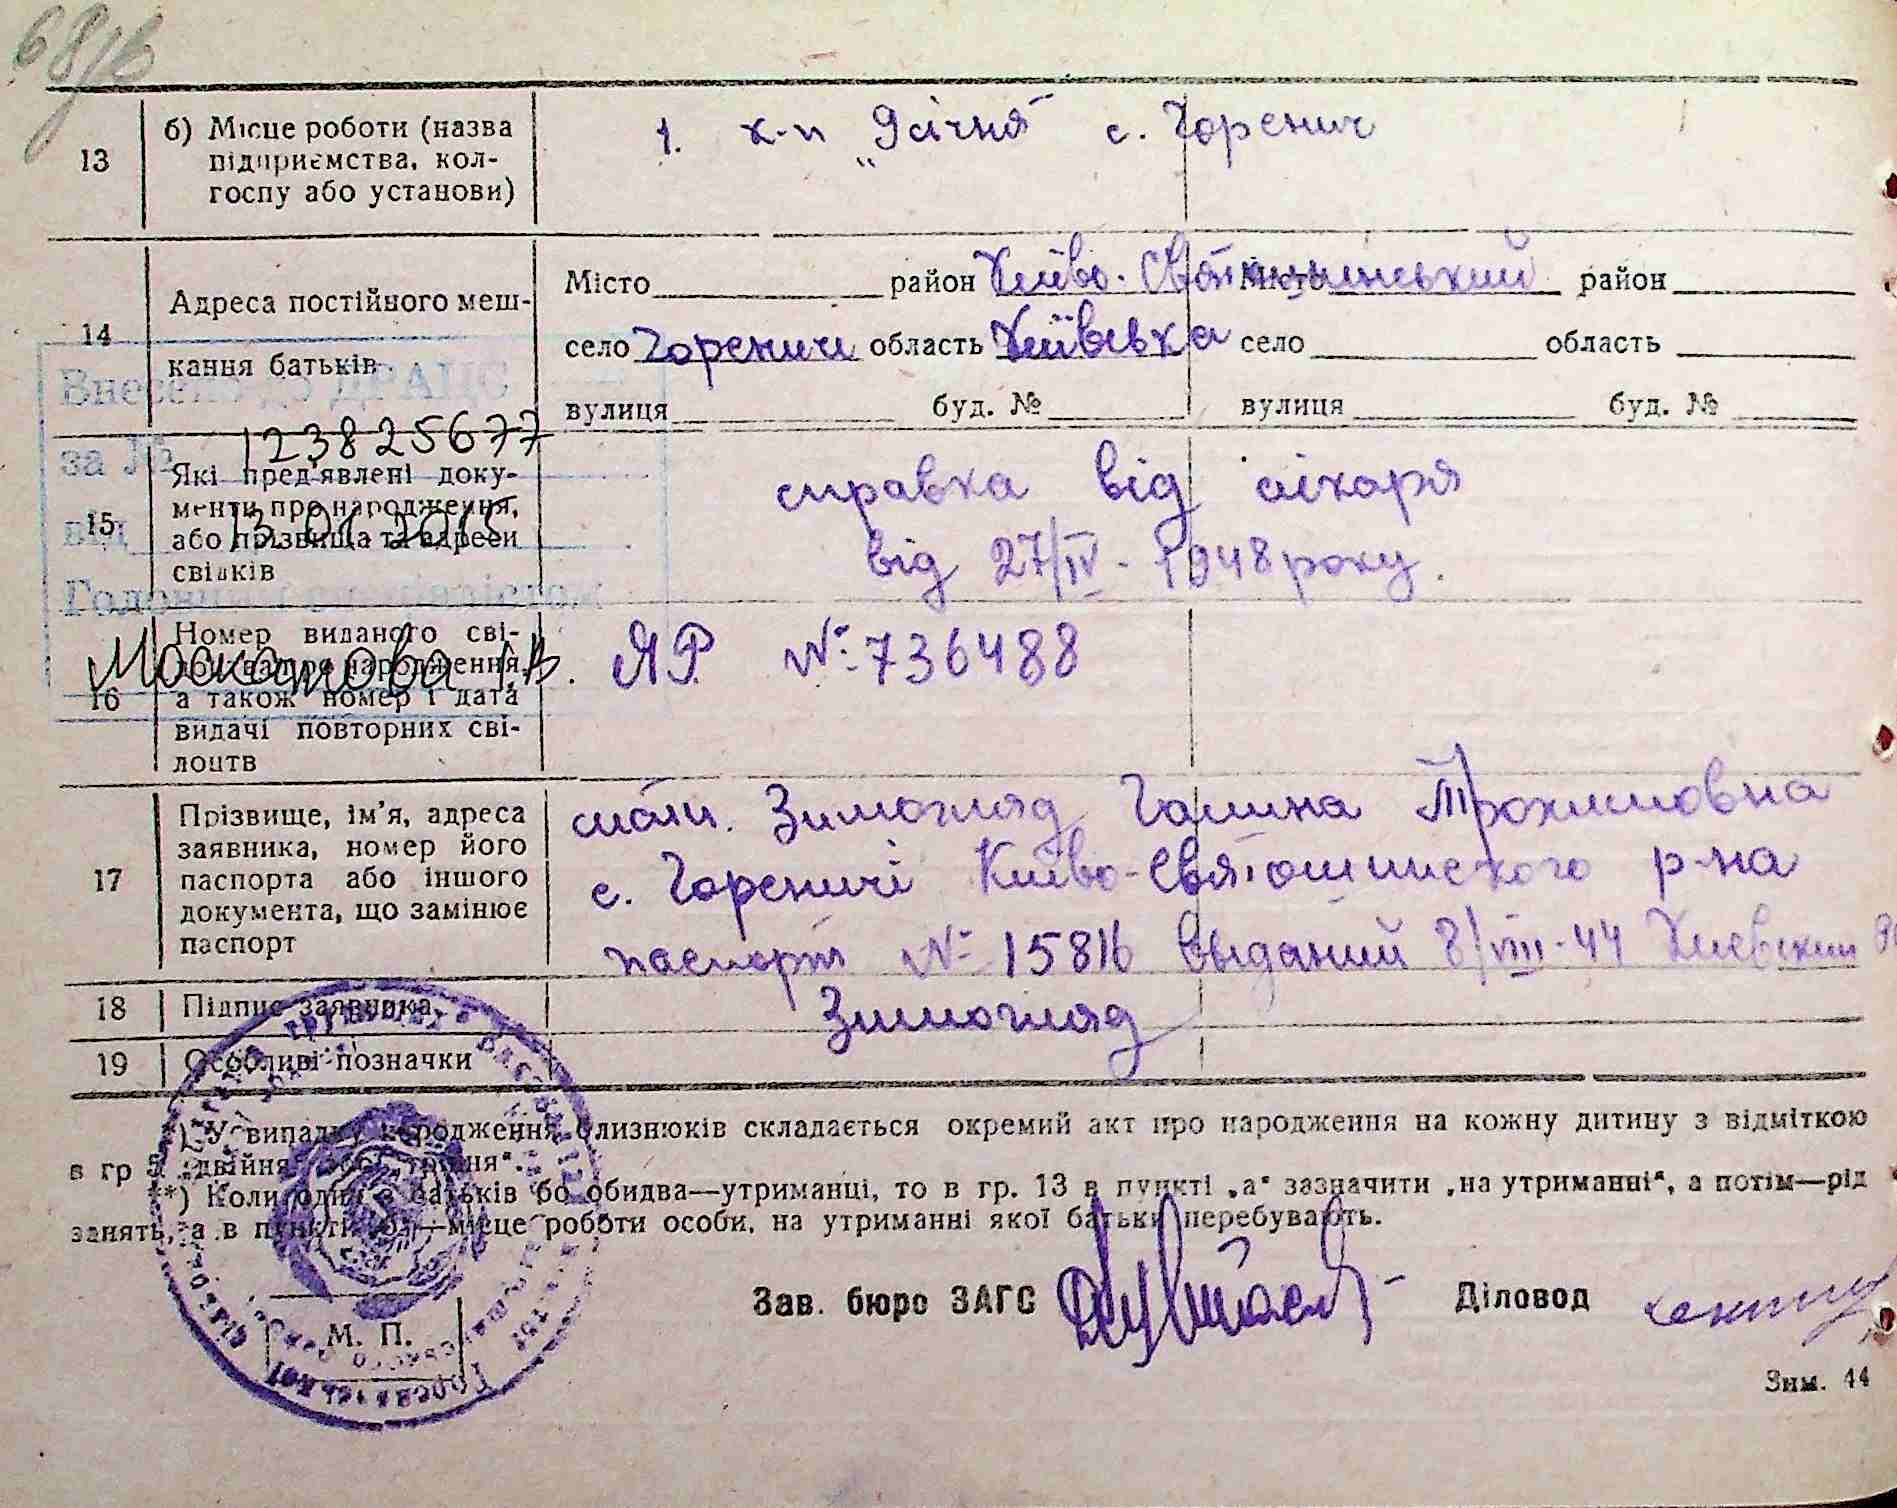 68/в
13 б) Місце роботи (назва підприємства, колгоспу або установи)
1. к-п „9 січня" с. Горенич
14 Адреса постійного мешкання батьків
Місто район Київо-Святошинський Місто район
село Гореничі область Київська село область
вулиця буд. № вулиця буд. №
Внесено до ДРАЦС
за № 123825677
від 13.01.2015
Головним спеціалістом
Москотова І.В.
15 Які пред'явлені документи про народження, або прізвища та адреси свідків
справка від лікаря
від 27/IV-1948 року.
16 Номер виданого свідоцтва про народження, а також номер і дата видачі повторних свідоцтв
ЯР № 736488
17 Прізвище, ім'я, адреса заявника, номер його паспорта або іншого документа, що замінює паспорт
мати. Зимогляд Галина Трохимовна
с. Гореничі Київо-Святошинского р-на
паспорт № 15816 выданий 8/VIII-44 Киевским
18 Підпис заявника
Зимогляд
19 Особливі позначки
*) У випадку народження близнюків складається окремий акт про народження на кожну дитину з відміткою
в гр 5 „двійня" або „трійня".
**) Коли один з батьків або обидва—утриманці, то в гр. 13 в пункті „а" зазначити „на утриманні", а потім—рід
занять, а в пункті „б"—місце роботи особи, на утриманні якої батьки перебувають.
Зав. бюро ЗАГС Діловод
М. П.
Зим. 44